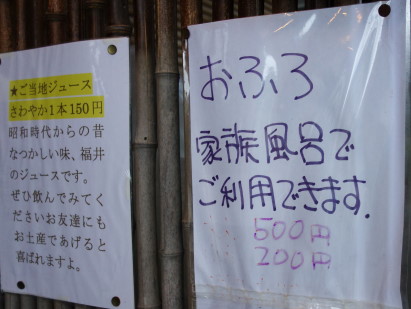 ★ご当地ジュース
さわやか1本150円
昭和時代からの昔
なつかしい味、福井
のジュースです。
ぜひ飲んでみてく
ださいお友達にも
お土産であげると
喜ばれますよ。
おふろ
家族風呂で
ご利用できます.
500円
200円